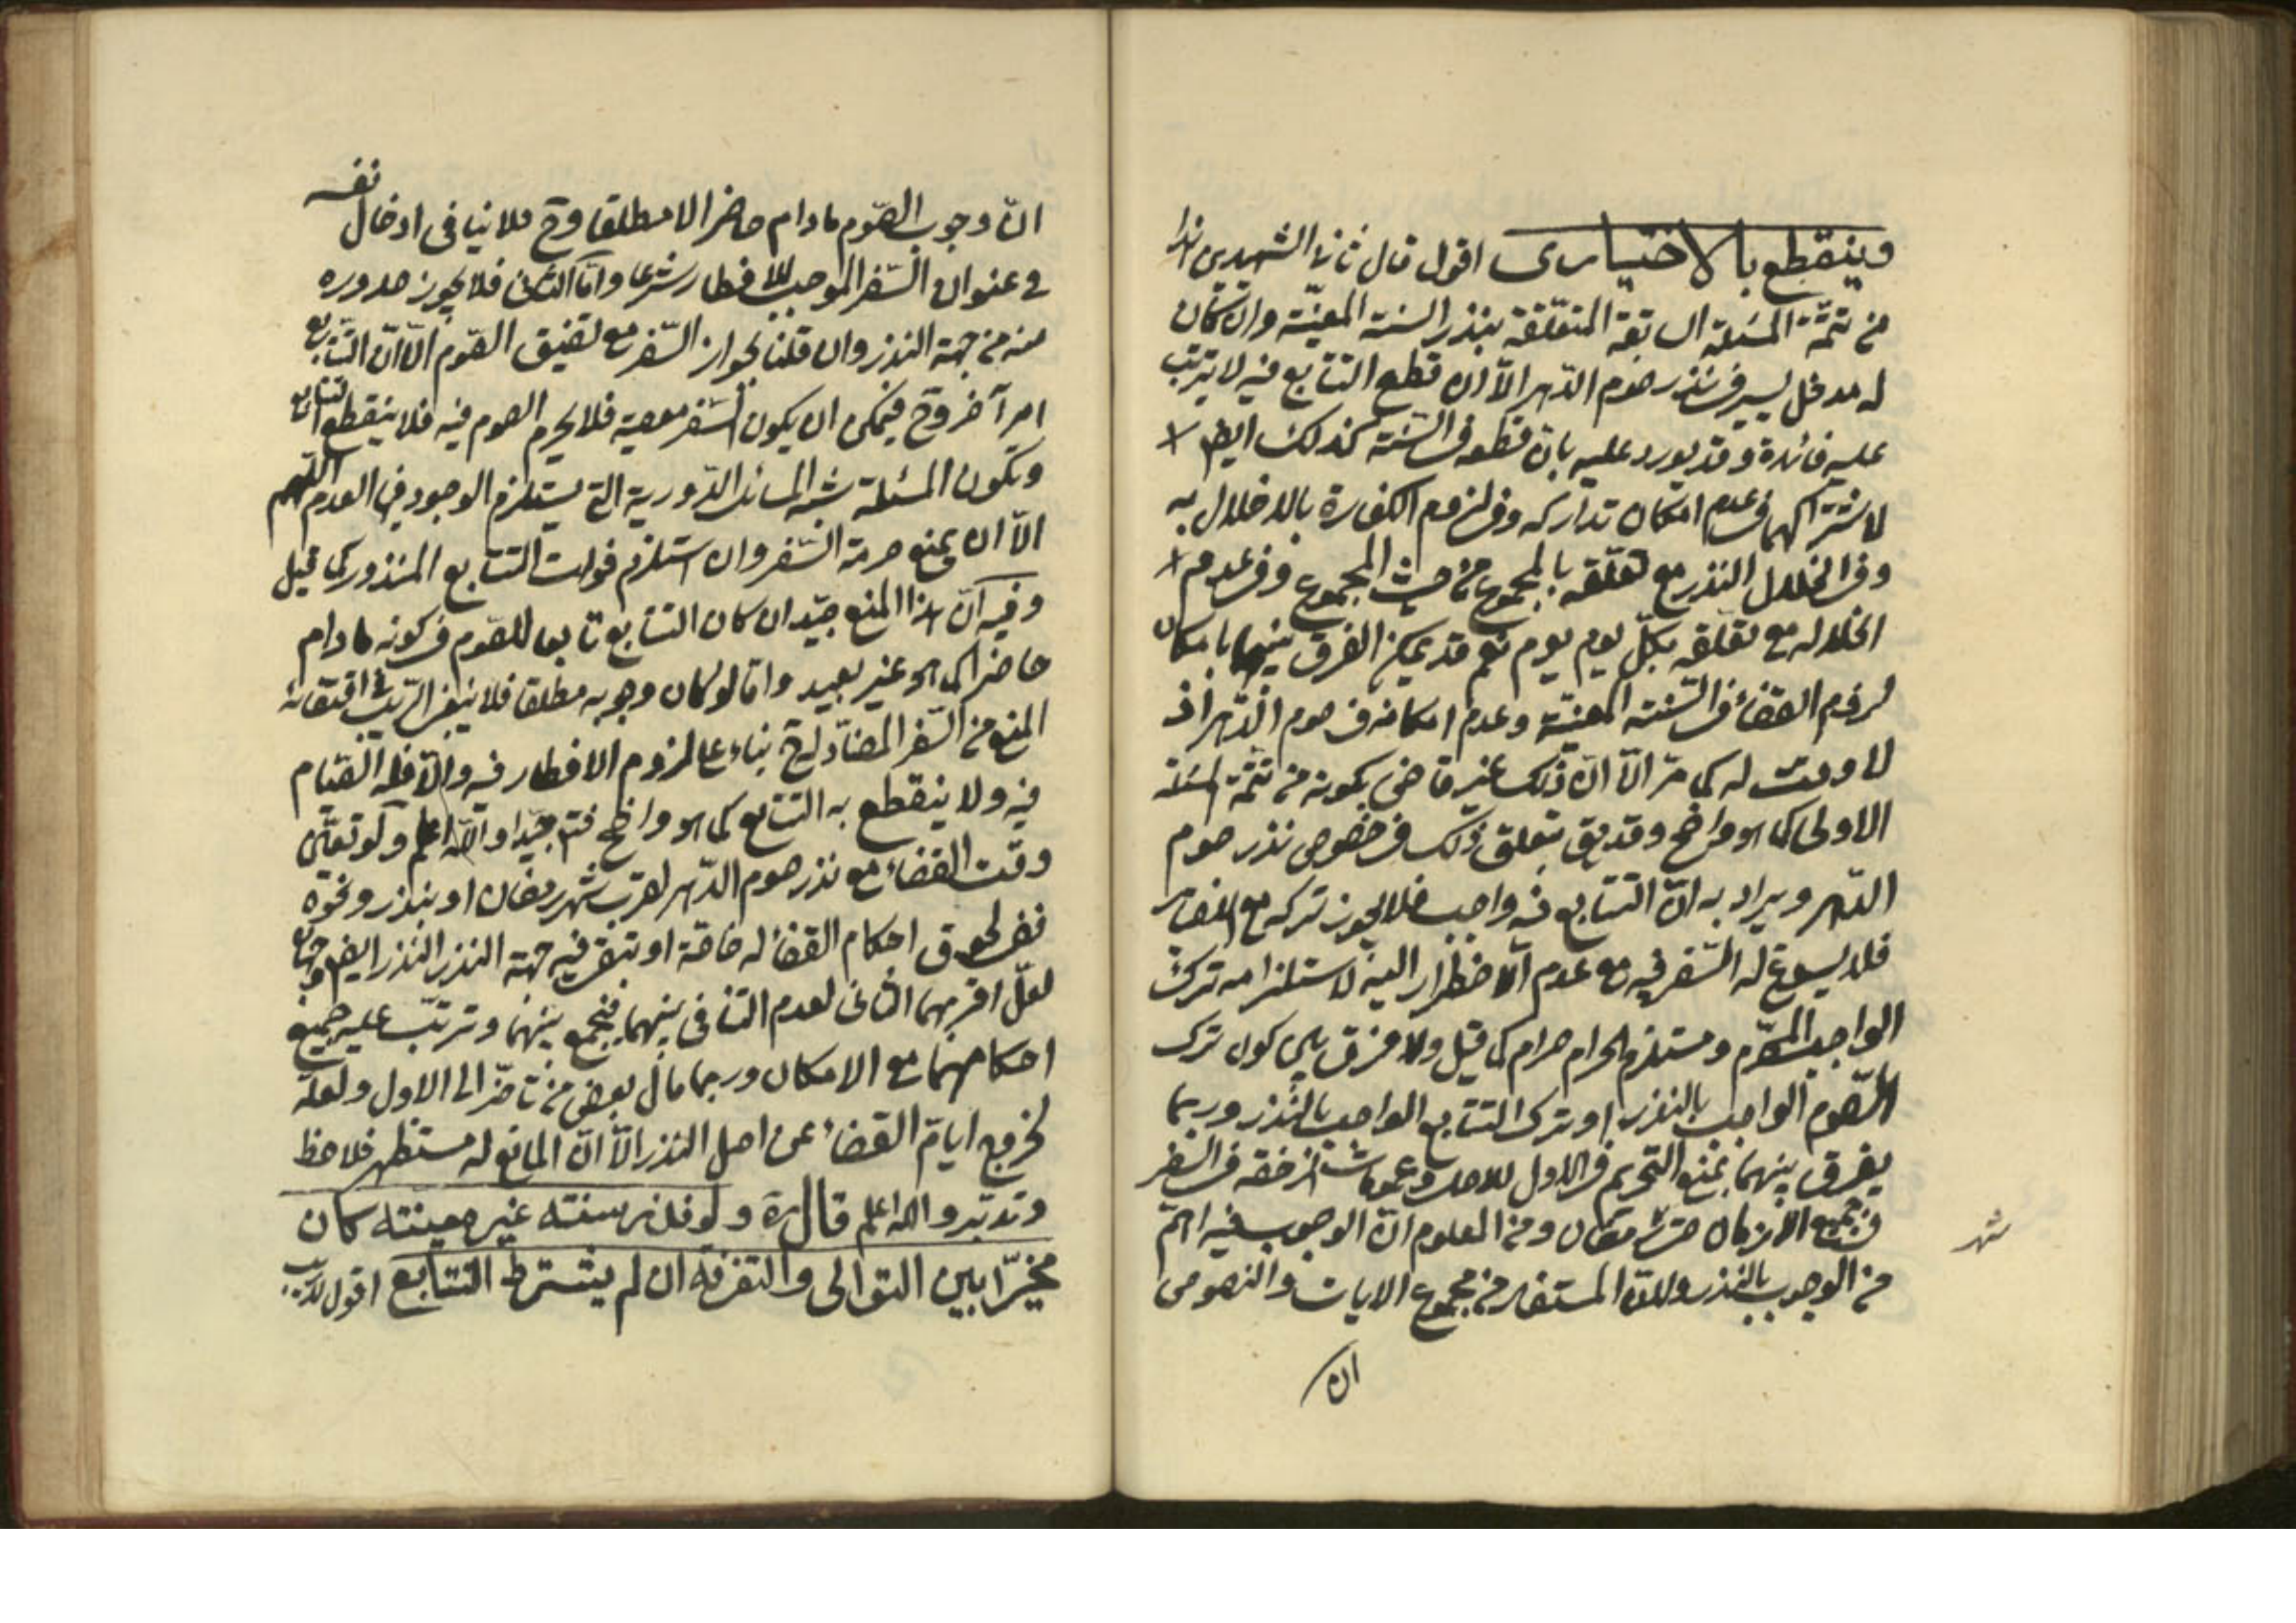 وينقطع بالاختياري اقول قال ثاني الشهيدين هذا
من تتمّة المسئلة السابقة المتعلّقة بنذر السنة المعيّنة وان كان
له مدخل يسير في نذر صوم الدّهر الّا ان قطع التتابع فيه لا يترتب
عليه فائدة وقد يورد عليه بان قطعه في السّنة كذلك ايضا
لاشتراكهما في عدم امكان تداركه وفي لزوم الكفارة بالاخلال به
وفي انحلال النذر مع تعلّقه بالمجموع من حيث المجموع وفي عدم
انحلاله مع تعلّقه بكلّ يوم يوم نعم قد يمكن الفرق بينهما بامكان
لزوم القضاء في السّنة المعيّنة وعدم امكانه في صوم الدّهر اذ
لا وقت له كما مرّ الّا انّ ذلك غير قاض بكونه من تتمّة المسئلة
الاولى كما هو واضح وقد يق بتعلق ذلك في خصوص نذر صوم
الدّهر ويراد به انّ التتابع فيه واجب فلا يجوز تركه مع
فلا يسوغ له السّفر فيه مع عدم الاضطرار اليه لاستلزامه ترك
الواجب المحرّم ومستلزم الحرام حرام كما قيل ولا فرق بين كون ترك
الصّوم الواجب بالنذر او ترك التتابع الواجب بالنّذر وربما
يفرق بينهما بمنع التحريم في الاول للاصل وعمومات الرّخصة في السّفر
في جميع الازمان حتى رمضان ومن المعلوم انّ الوجوب فيه اهمّ
شهر
من الوجوب بالنذر ولانّ المستفاد من مجموع الايات والنصوص
ان
انّ وجوب الصّوم ما دام حاضرا لا مطلقا وح فلا ينافي ادخال نفسه
في عنوان السّفر الموجب للافطار شرعا وامّا الثاني فلا يجوز صدوره
منه من جهة النذر وان قلنا بجواز السّفر مع تضيق الصّوم الّا انّ التّتابع
امر آخر وح فيمكن ان يكون السّفر معصية فلا يحرم الصوم فيه فلا ينقطع التتابع
وتكون المسئلة شبه المسائل الدّورية التي يستلزم الوجود فيها العدم اللّهم
الّا ان يمنع حرمة السّفر وان استلزم فوات التتابع المنذور كما قيل
وفيه انّ هذا المنع جيّد ان كان التتابع تابعا للصّوم في كونه ما دام
حاضرا كما هو غير بعيد وامّا لو كان وجوبه مطلقا فلا ينبغي الرّيب في اقتضائه
المنع من السّفر المضادّ له ح بناء على لزوم الافطار فيه والّا فله الصّيام
فيه ولا ينقطع به التتابع كما هو واضح فتدبر جيّدا واللّه اعلم ولو تعيّن
وقت القضاء مع نذر صوم الدّهر لقرب شهر رمضان او بنذر ونحوه
ففي لحوق احكام القضاء له خاصّة او تبقى فيه جهة النذر النذر ايضا وجهان
لعلّ اقربهما الثاني لعدم التنافي بينهما فيجمع بينهما وترتّب عليه جميع
احكامهما مع الامكان وربما مال بعض من تاخّر الى الاول ولعلّه
لخروج ايام القضاء عن اصل النذر الّا انّ المانع له مستظهر فلاحظ
وتدبّر والله اعلم قال ره ولو نذر سنته غير معينته كان
مخيّرا بين التوالى والتفرقة ان لم يشترط التتابع اقول